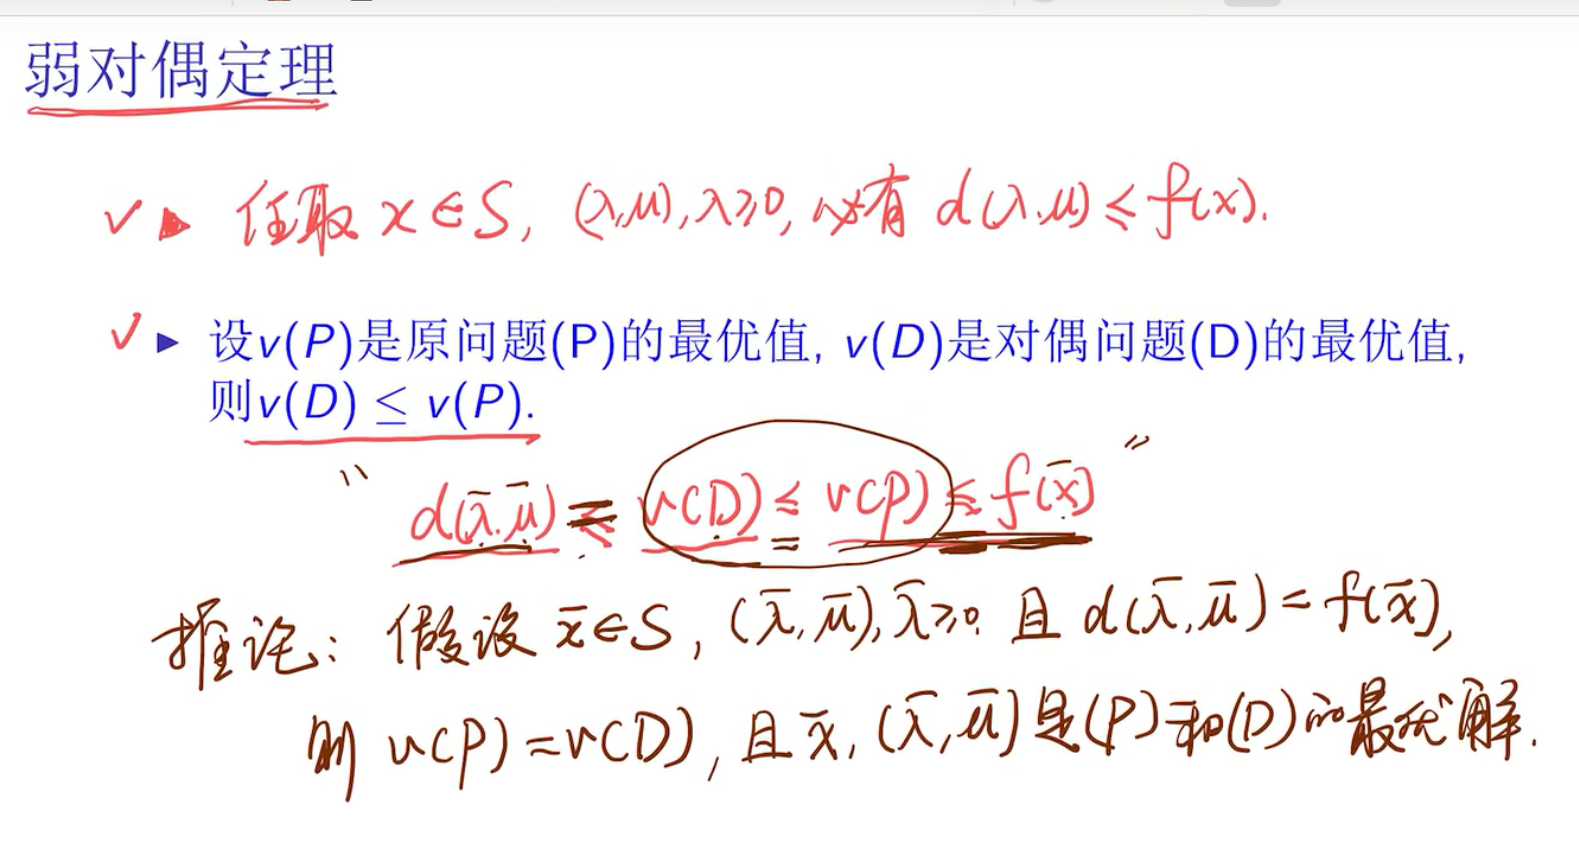 弱对偶定理
任取 x∈S, (λ,μ), λ≥0, 必有 d(λ,μ) ≤ f(x).
设v(P)是原问题(P)的最优值, v(D)是对偶问题(D)的最优值,
则v(D) ≤ v(P).
" d(λ̄,μ̄) ≤ v(D) ≤ v(P) ≤ f(x̄) "
=
推论: 假设 x̄∈S, (λ̄,μ̄), λ̄≥0. 且 d(λ̄,μ̄) = f(x̄),
则 v(P) = v(D), 且 x̄, (λ̄,μ̄) 是(P)和(D)的最优解.